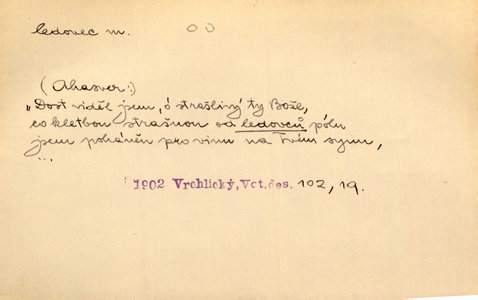 ledovec m.
(Ahasver:)
„Dost viděl jsem, ó strašlivý ty Bože,
co kletbou strašnou od ledovců pólu
jsem poháněn pro vinu na Tvém synu,
...
1902 Vrchlický, Vct.des. 102, 19.